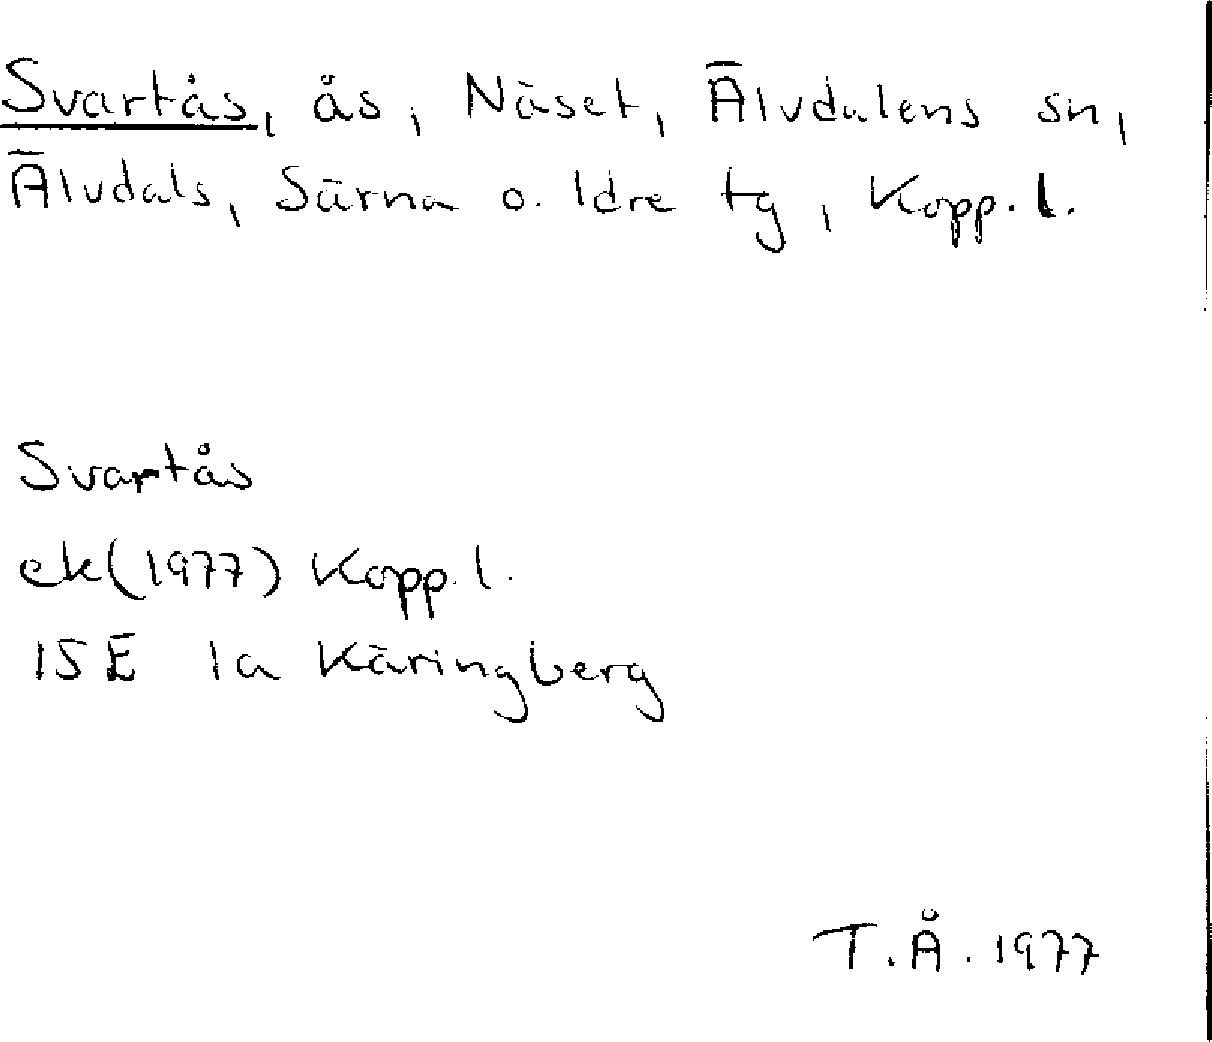 Svartås, ås, Näset, Älvdalens sn,
Älvdals, Särna o. Idre tg, Kopp. l.
Svartås
ek(1977) Kopp. l.
15E 1a Käringberg
T.Å. 1977